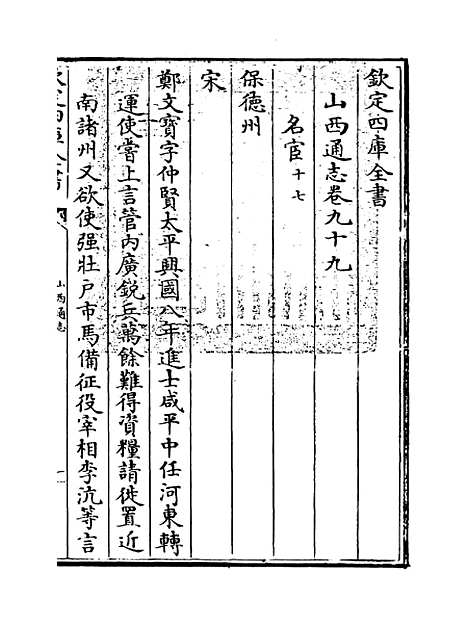 欽定四庫全書
山西通志卷九十九
名宦十七
保德州
宋
鄭文寶字仲賢太平興國八年進士咸平中任河東轉
運使嘗上言管內廣銳兵萬餘難得資糧請徙置近
南諸州又欲使强壯戶市馬備征役宰相李沆等言
山西通志